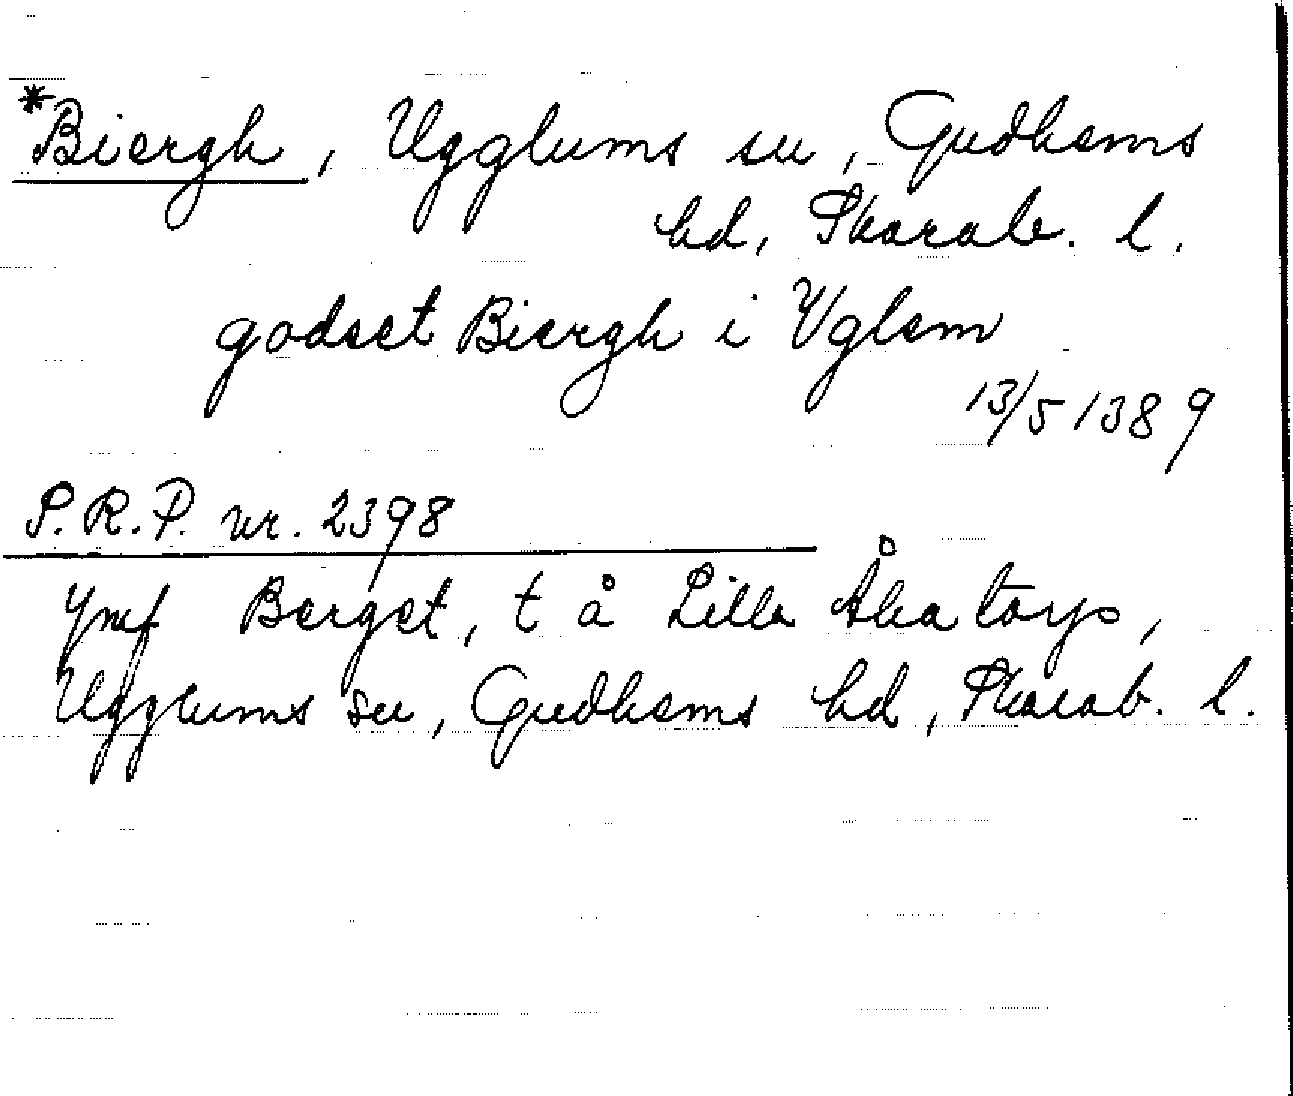 *Biergh, Ugglums sn, Gudhems
hd, Skarab. l.
godset Biergh i Vglem
13/5 1389
S.R.P. nr. 2398
Jmf Berget, t å Lilla Åkatorp,
Ugglums sn, Gudhems hd, Skarab. l.